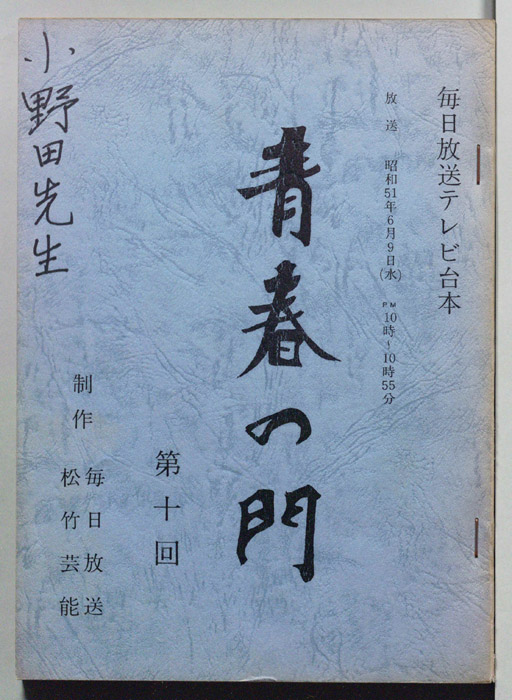 毎日放送テレビ台本
放送 昭和51年6月9日(水) PM10時~10時55分
青春の門
第十回
制作 毎日放送
松竹芸能
小野田先生